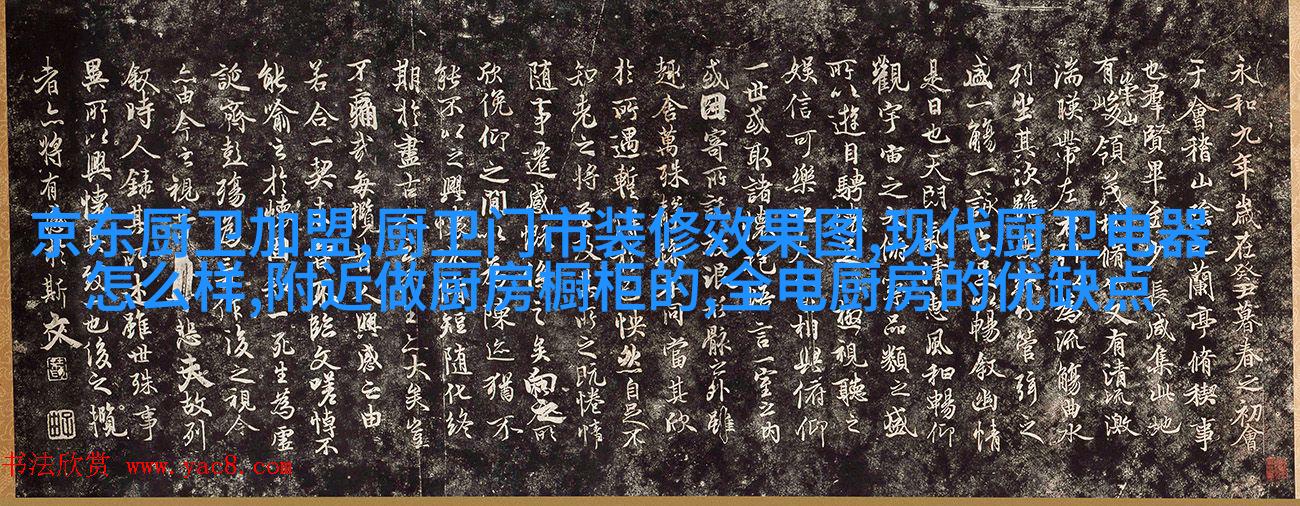 永和九年歲在癸丑暮春之初會
于會稽山陰之蘭亭脩稧事
也羣賢畢至少長咸集此地
有崇山峻領茂林脩又有清流激
湍暎帶左右為流觴曲水
列坐其次雖竹管弦之
盛一觴一詠暢敘幽情
是日也天朗氣清惠風和暢仰
觀宇宙之品類之盛
所以遊目騁極視聽之
娛信可樂相與俯仰
一世或取諸懷抱悟言一室之內
或因寄所託放浪形骸之外雖
趣舍萬殊靜同當其欣
於所遇暫怏然自足不
知老之將至及所之既惓情
隨事遷感慨係之矣向之所
欣俛仰之間以陳迹猶不
能不以之興懷短隨化終
期於盡古人大矣豈
不痛哉每攬人興感之由
若合一契臨文嗟悼不
能喻之於懷一死生為虛
誕齊彭殤作後之視今
亦由今之視悲夫故列
敘時人錄其述雖世殊事
異所以興懷其致也後之攬
者亦將有斯文
京东厨卫加盟,厨卫门市装修效果图,现代厨卫电器
怎么样,附近做厨房橱柜的,全电厨房的优缺点
书法欣赏 www.yac8.com